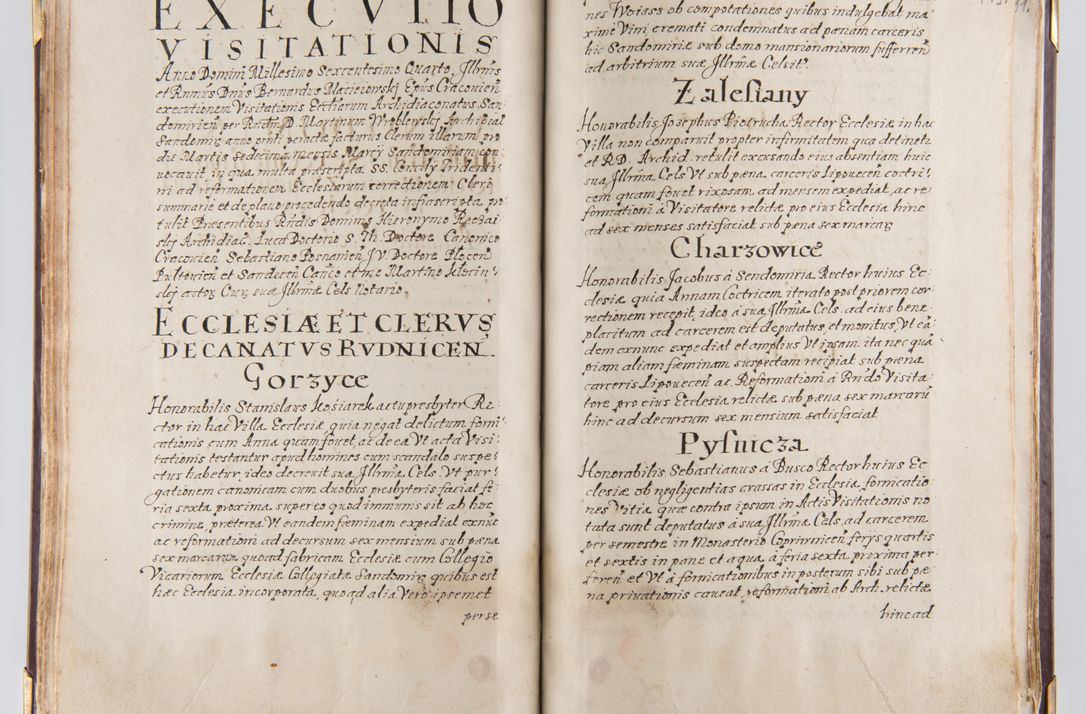 EXECVTIO
VISITATIONIS
Anno Domini Millesimo Sexcentesimo Quarto, Jllrmus
et Rnmus Dnus Bernardus Macieiowskj Epus Cracouien
executionem Visitationis Ecctiarum Archidiaconatus San
domirien per Rndm D. Martinum Wroblewskj Archidial
Sandomir anno pnti peracte facturus Clerum illarum pro
die Martis Sedecima mensis Martij Sandomiriam con
uocauit, in qua multa præscripta SS. Concilij Tridenti
ni ad reformationem Ecclesiarum correctionem Cleri
summarie et de plano procedendo decreta infrascripta pro
tulit Præsentibus Rndis Dominis Hieronymo Reczai
skj Archidiac. Luca Doctorio S. Th. Doctore Canonico
Cracouien Sebastiano Posnanien J.V. Doctore Plocen
Pultouien et Sandecen Canco et me Martino Klocin
skj actor Cur suæ Jllrmæ Cels Notario.
ECCLESIÆ ET CLERVS
DECANATVS RVDNICEN.
Gorzyce
Honorabilis Stanislaus Kosiarek actu presbyter Re
ctor in hac Villa Ecclesiæ quia negat delictum forni
cationis cum Anna quam fouet, ac de ea Vt acta Visi
tationis testantur apud homines cum scandalo suspe
ctus habetur, ideo decreuit sua Jllrma Cels. Vt pur
gationem canonicam cum duobus presbyteris faciat fe
ria sexta proxima super eo quod immunis sit ab hoc
crimine, præterea Vt eandem fæminam expediat exnuc
ac reformationi ad decursum sex mensium sub pæna
sex marcarum quoad fabricam Ecclesiæ cum Collegio
Vicariorum Ecclesiæ Collegiatæ Sandomir quibus est
hæc Ecclesia incorporata, quoad alia Vero ipsemet
per se
nes Woiass ob compotationes quibus indulgebat ma
xime Vini cremati condemnatus ad pænam carceris
hic Sandomiriæ sub domo mansionariorum sufferren
ad arbitrium suæ Jllrmæ Celsit.
Zalesiany
Honorabilis Josephus Piotrucha Rector Ecclesiæ in hac
Villa non comparuit propter infirmitatem qua detinetr
et R.D. Archid. retulit excusando eius absentiam huic
sua Jllrma Cels Vt sub pæna carceris Lipouecen coctri
cem quam fouet rixosam ad mensem expediat, ac re
formationi a Visitatore relictæ pro eius Ecclesia hinc
ad sex menses satisfaciat sub pæna sex marcar
Charzowice
Honorabilis Jacobus á Sendomiria Rector huius Ec
clesiæ quia Annam Coctricem iterato post priorem cor
rectionem recepit, ideo á sua Jllrma Cels. ad eius bene
placitum ad carcerem est deputatus et monitus, Vt ea
dem exnunc expediat et amplius Vt ipsam ita nec qua
piam aliam fæminam suspectam recipiat sub pæna
carceris Lipouecen ac Reformationi á Rndo Visita
tore pro eius Ecclesia relictæ sub pæna sex marcarū
hinc ad decursum sex mensium satisfaciat
Pysnicza
Honorabilis Sebastianus á Busco Rector huius Ec
clesiæ ob negligentias crassas in Ecclesia fornicatio
nes Vitia quæ contra ipsum in Actis Visitationis no
tata sunt deputatus á sua Jllrma Cels. ad carcerem
per semestre in Monasterio Coprivnicen ferijs quartis
et sextis in pane et aqua, á feria sexta proxima per
feren et Vt á fornicationibus in posterum sibi sub pæ
na priuationis caueat, reformationi ab Arch. relictæ
hinc ad